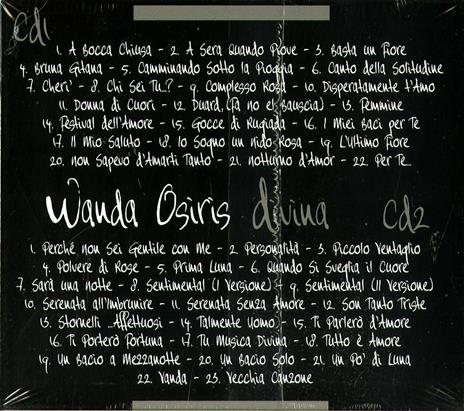 cd1
1. A Bocca Chiusa - 2. A Sera Quando Piove - 3. Basta un Fiore
4. Bruna Gitana - 5. Camminando Sotto la Pioggia - 6. Canto della Solitudine
7. Cheri' - 8. Chi Sei Tu..? - 9. Complesso Rosa - 10. Disperatamente t'Amo
11. Donna di Cuori - 12. Duard, (Fa no el Bauscia) - 13. Femmine
14. Festival dell'Amore - 15. Gocce di Rugiada - 16. I Miei Baci per Te
17. Il Mio Saluto - 18. Io Sogno un Nido Rosa - 19. L'Ultimo Fiore
20. non Sapevo d'Amarti Tanto - 21. notturno d'Amor - 22. Per Te..
Wanda Osiris divina cd2
1. Perché non Sei Gentile con Me - 2. Personalità - 3. Piccolo Ventaglio
4. Polvere di Rose - 5. Prima Luna - 6. Quando Si Sveglia il Cuore
7. Sarà una notte - 8. Sentimental (I Versione) - 9. Sentimental (II Versione)
10. Serenata all'Imbrunire - 11. Serenata Senza Amore - 12. Son Tanto Triste
13. Stornelli ..Affettuosi - 14. Talmente Uomo - 15. Ti Parlerò d'Amore
16. Ti Porterò Fortuna - 17. Tu Musica Divina - 18. Tutto è Amore
19. Un Bacio a Mezzanotte - 20. Un Bacio Solo - 21. Un Po' di Luna
22. Vanda - 23. Vecchia Canzone